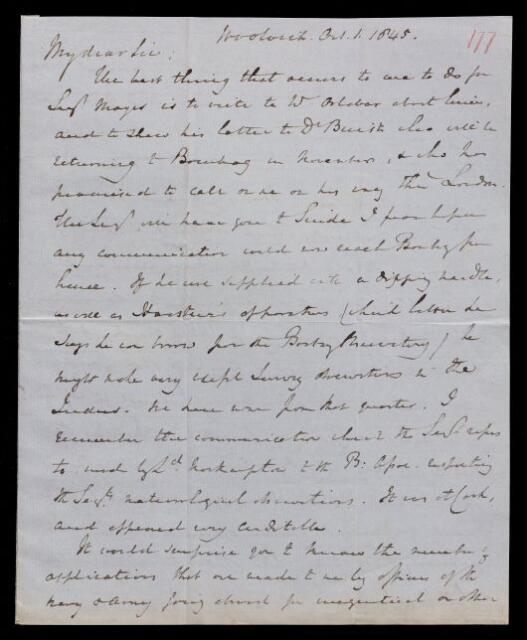 Woolwich. Oct. 1. 1845.
177
My dear Sir;
The best thing that occurs to me to do for
Serjt Mayes is to write to Dr about him,
and to shew his letter to Dr Buist who will be
returning to Bombay in November, & who has
promised to call on me on his way thro London.
The Serjt will have gone to Scinde I fear before
any communication could now reach Bombay from
hence. If he were supplied with a dipping needle,
as well as Hansteen's apparatus (which latter he
says he can borrow from the Bombay Observatory) he
might make very useful Survey observations in the
Indus. We have none from that quarter. I
remember the communication which the Serjt refers
to: read by Ld Northampton to the B: Assoc. respecting
the Serjt's meteorological observations. It was at Cork,
and appeared very creditable.
It would surprise you to know the number of
applications that are made to me by officers of the
Navy & Army going abroad for magnetical or other